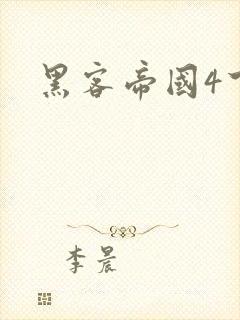 黑客帝國4
李晨